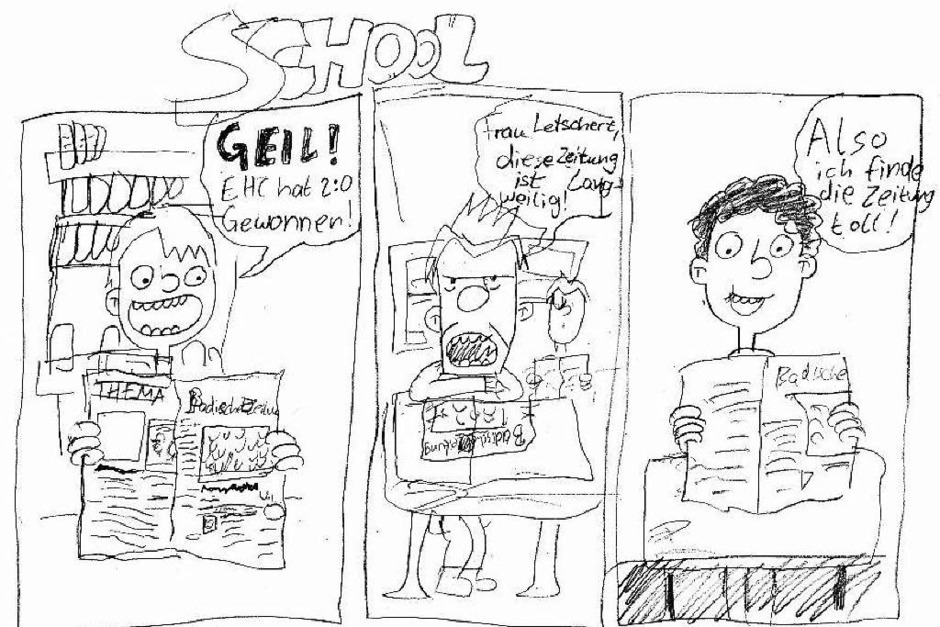 SCHOOL
GEIL!
EHC hat 2:0
Gewonnen!
Frau Letschert,
diese Zeitung
ist Lang-
weilig!
Also
ich finde
die Zeitung
toll!
THEMA
Badische Zeitung
Badische Zeitung
Badische